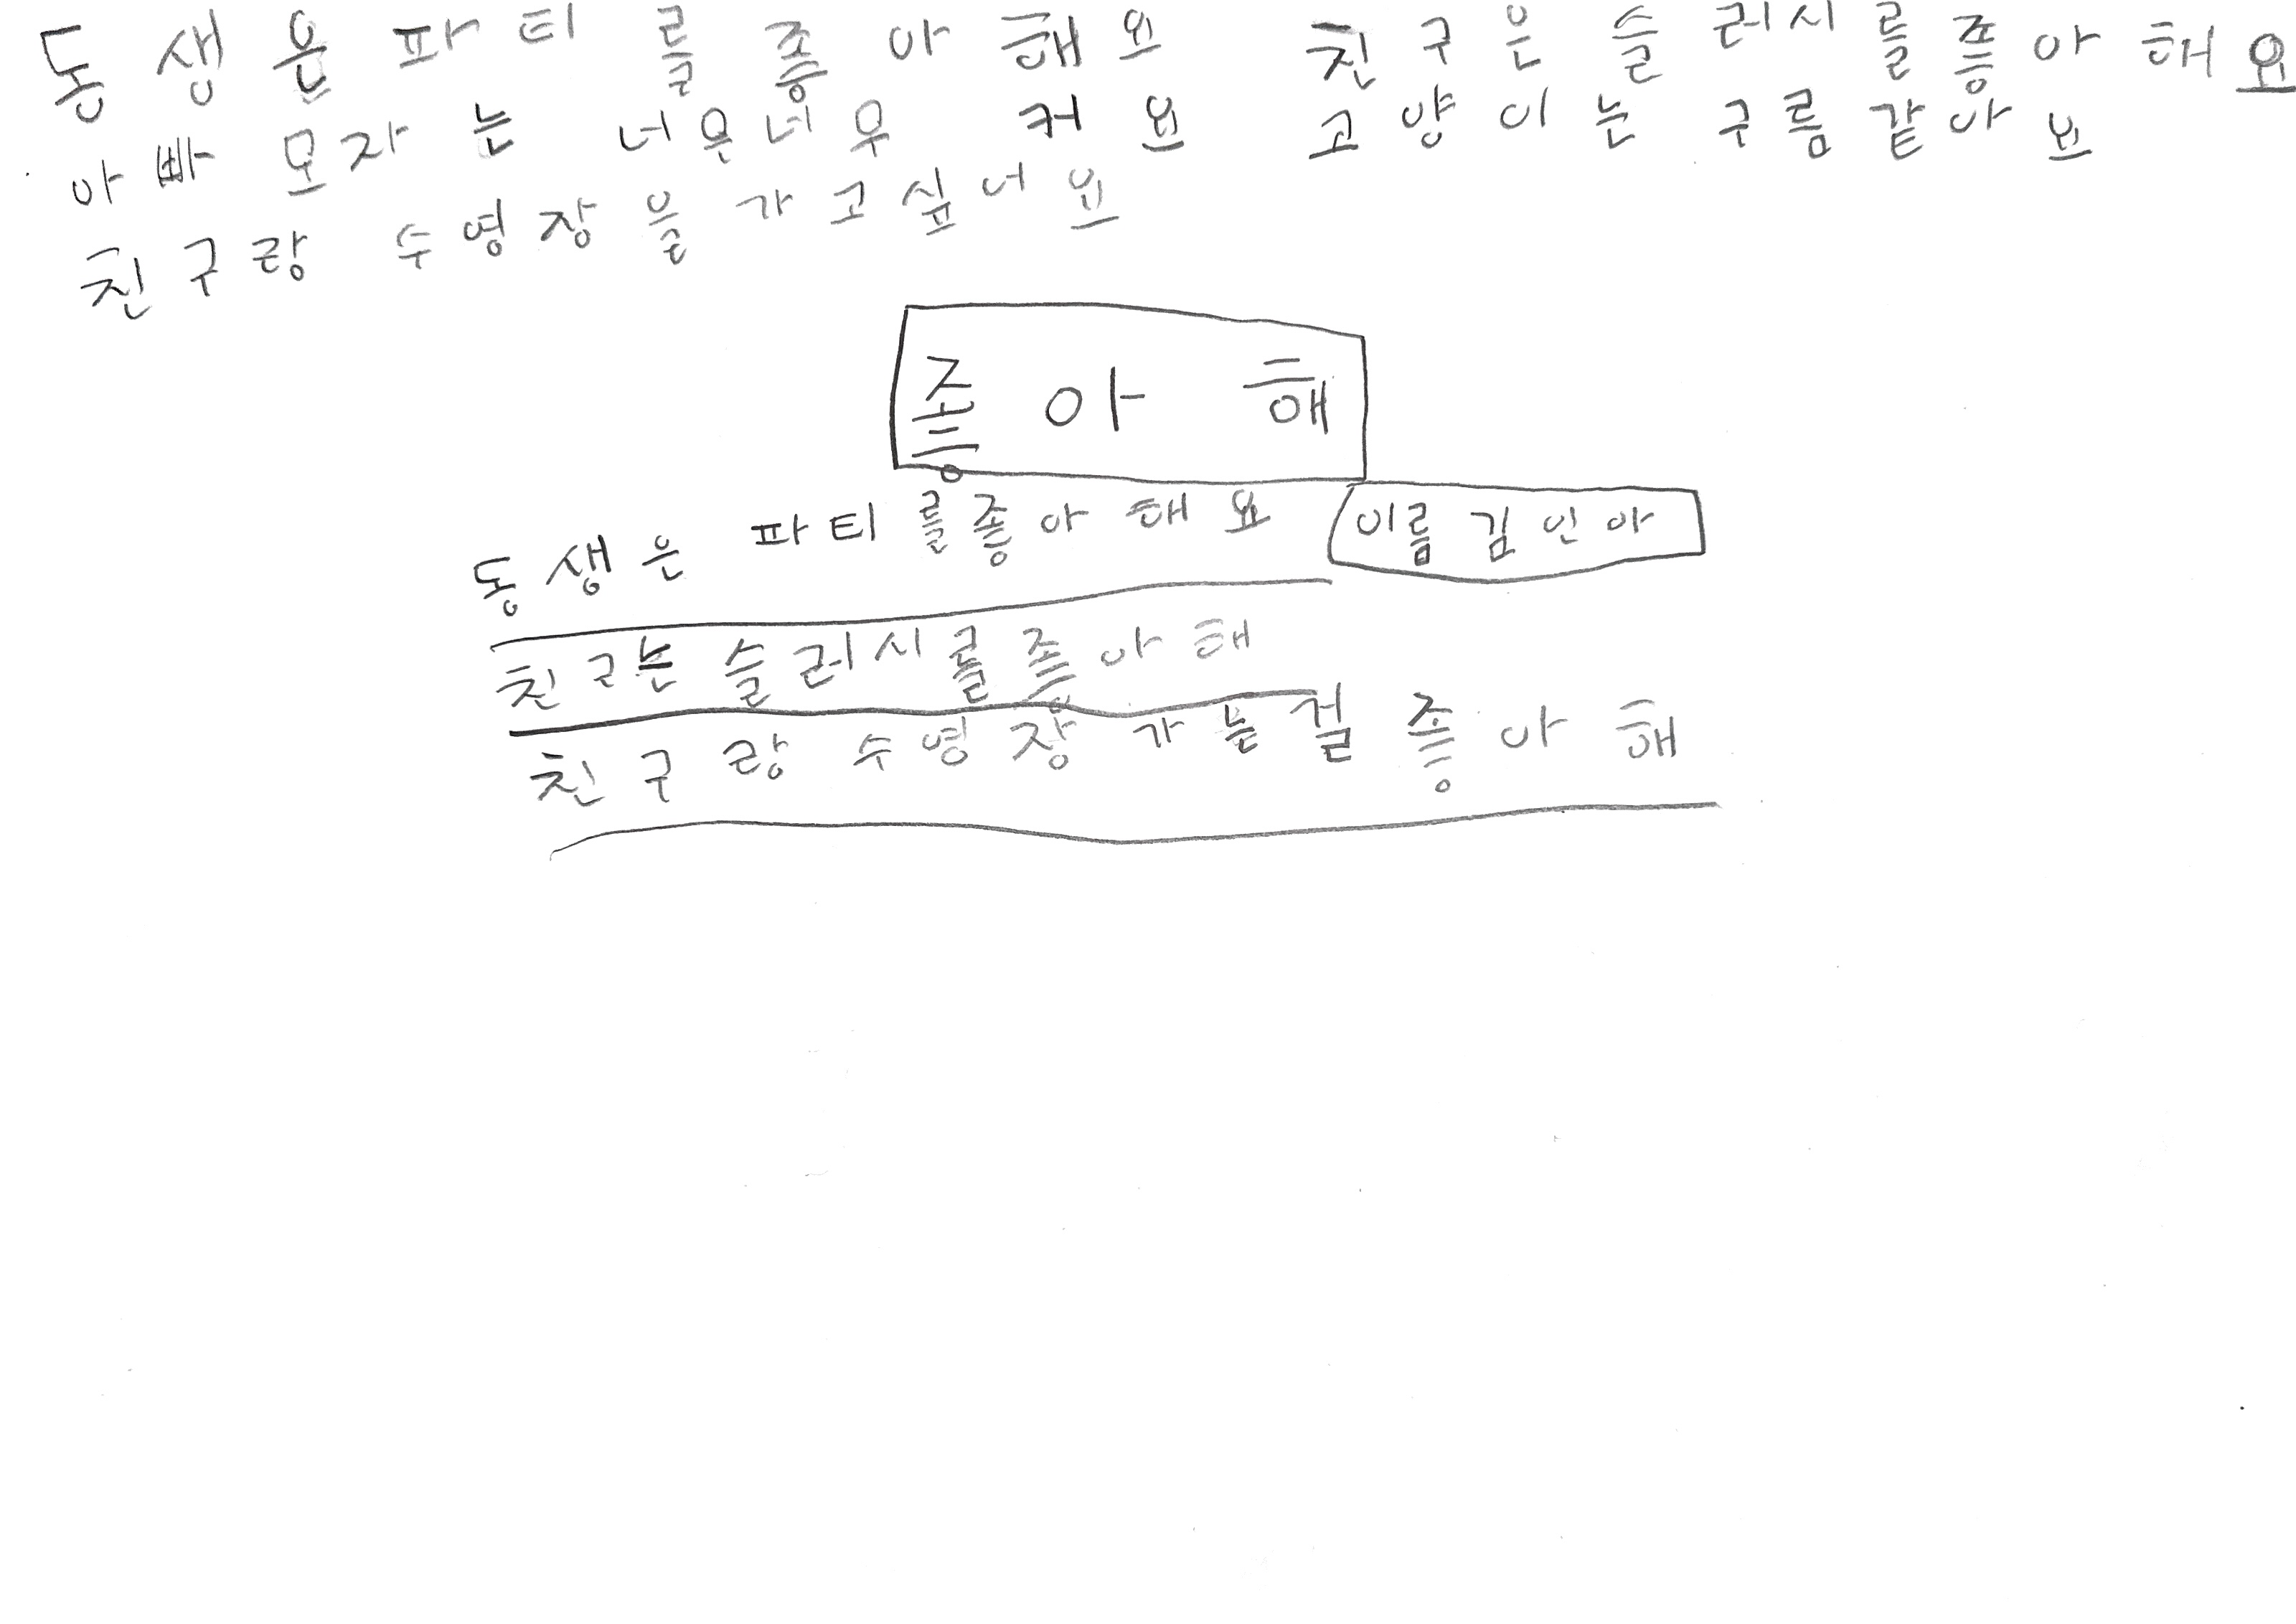 동생은 파티를 좋아해요 친구은 슬러시를 좋아해요
아빠 모자는 너무너무 커요 고양이는 구름같아요
친구랑 수영장을 가고싶너요
좋아해
동생은 파티를좋아해요 이름 김인아
친구는 슬러시를좋아해
친구랑 수영장 가는걸 좋아해